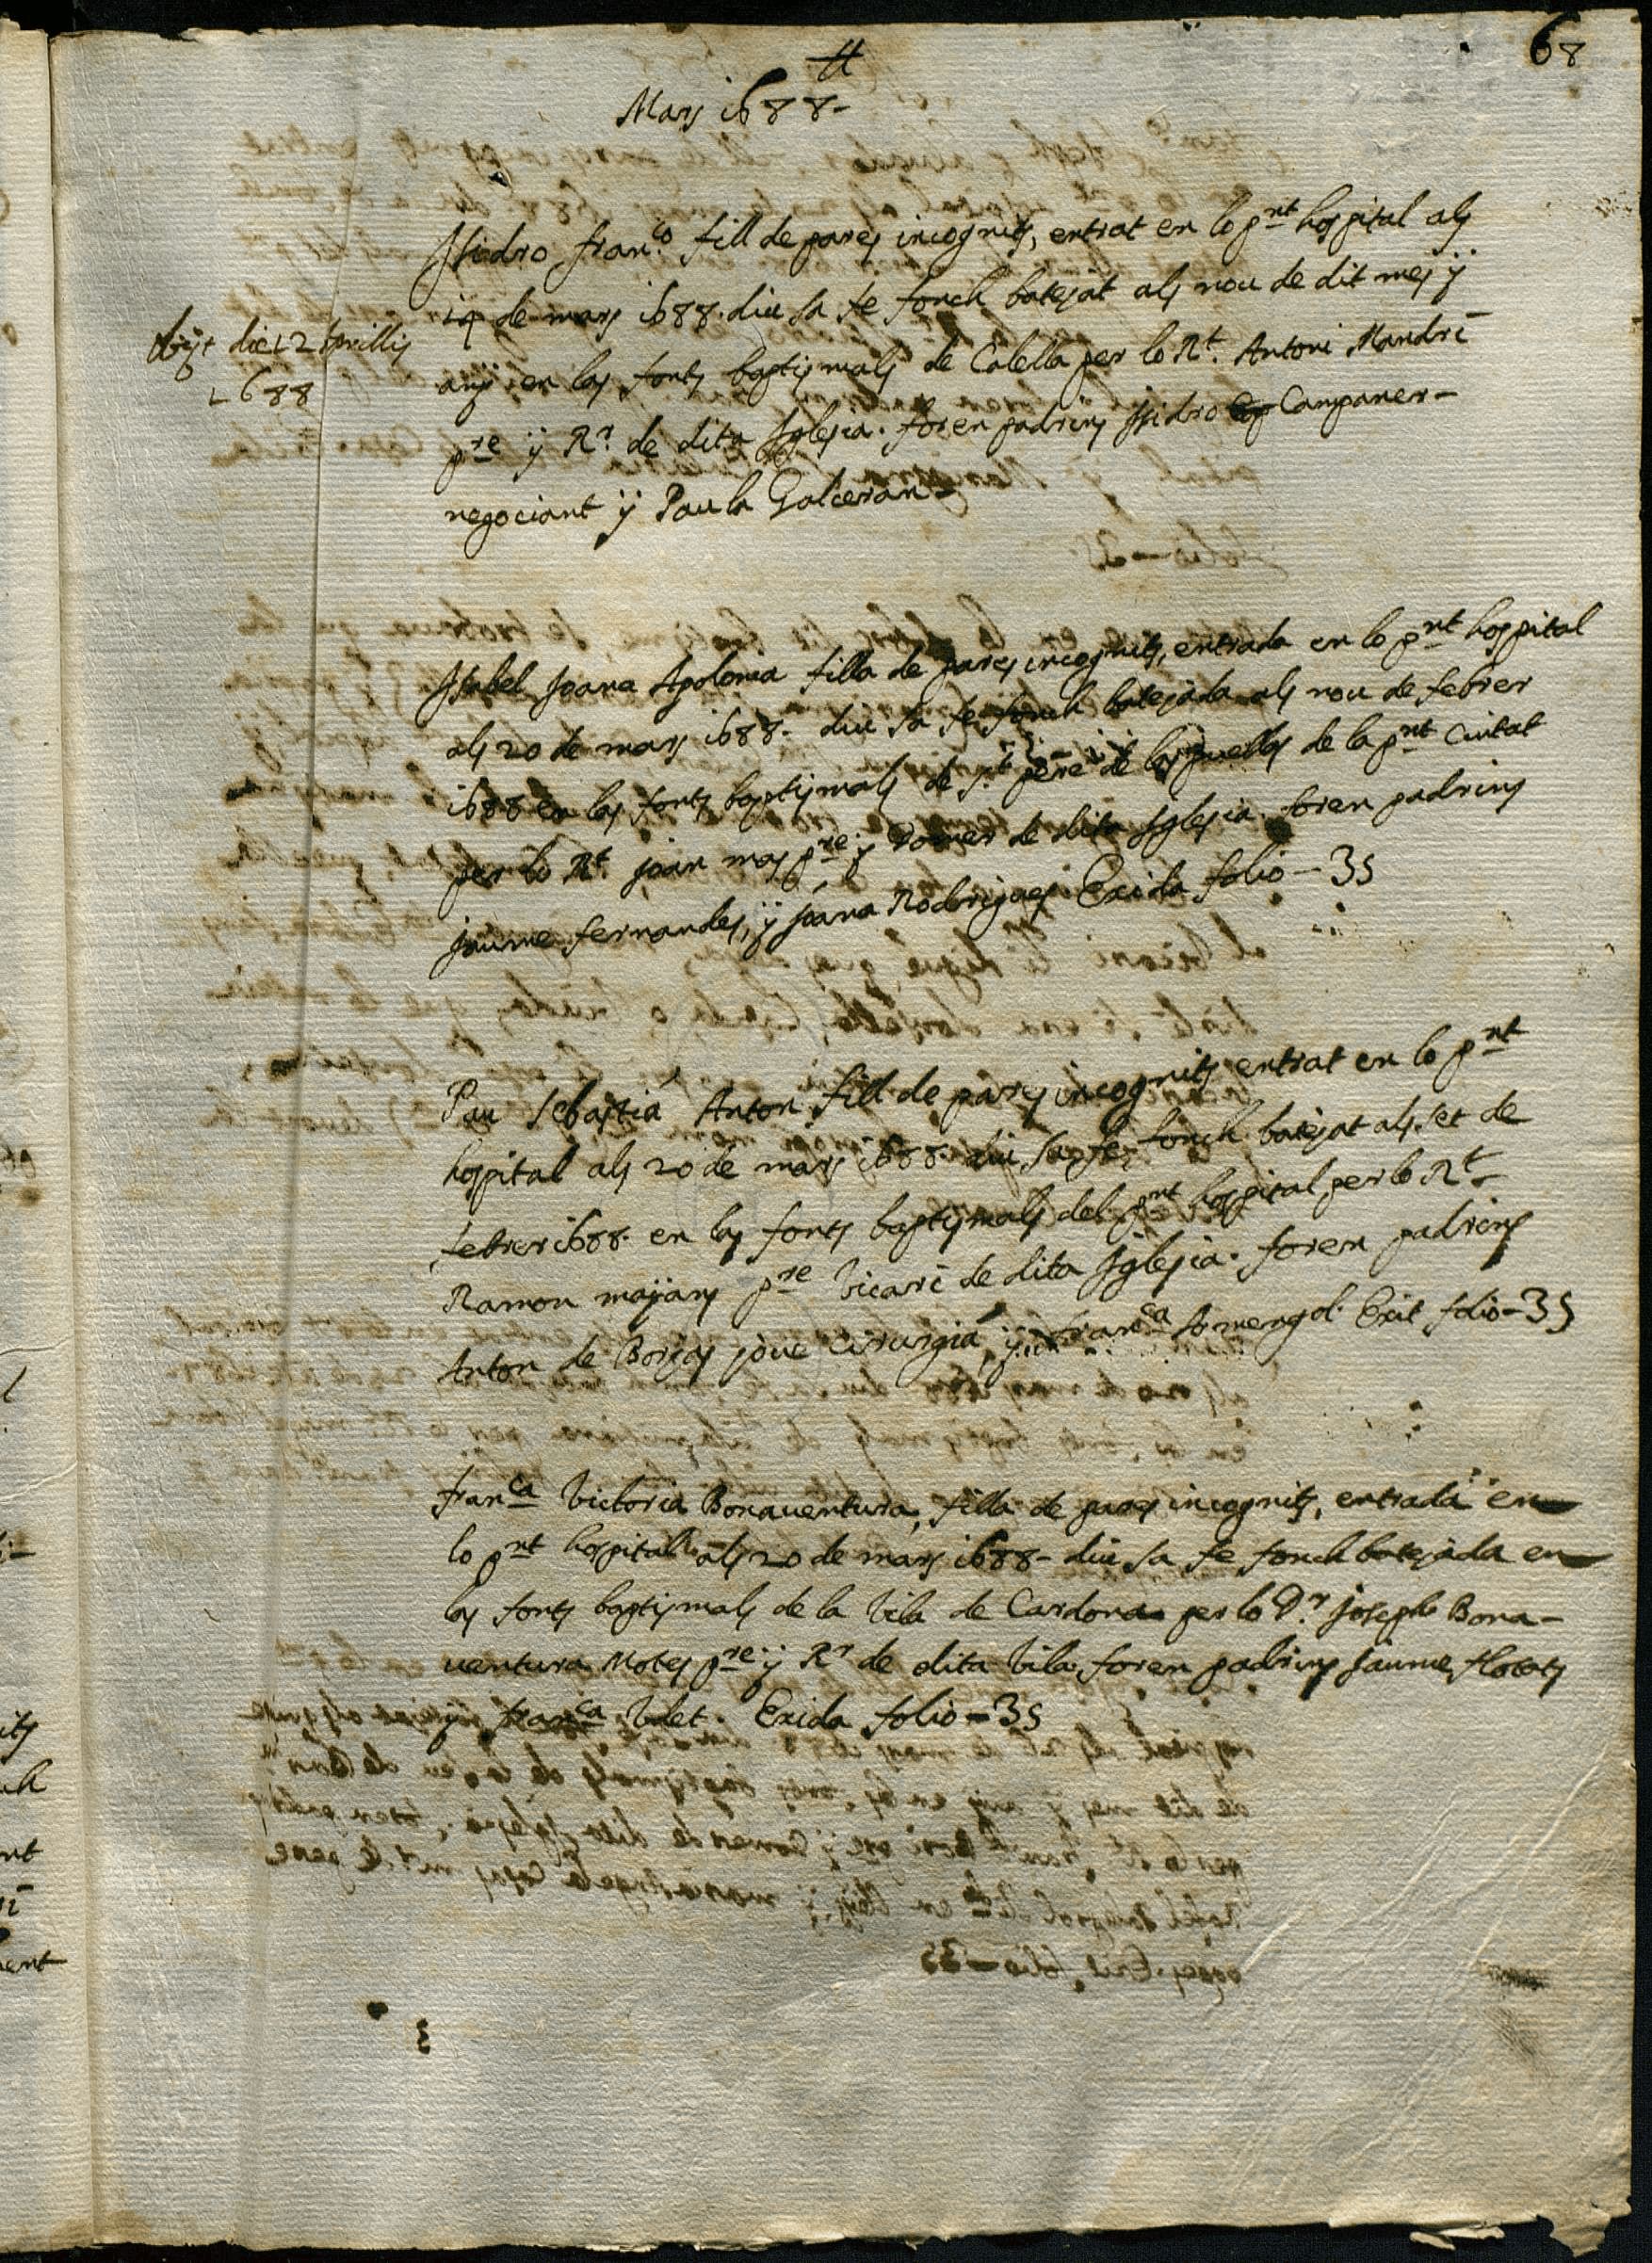 68
Mars 1688-
Isidro Fran.co fill de pares incognits, entrat en lo pnt hospital als
de mars 1688. diu sa fe fonch batejat als nou de dit mes ÿ
anÿ en las fonts baptismals de Calella per lo Rt. Antoni Mandri
pre ÿ Rr. de dita Iglesia. foren padrins Isidro Campaner-
negociant ÿ Paula Galceran-
obijt die 12 Aprillis
1688
Isabel Joana Apolonia filla de pares incognits, entrada en lo pnt hospital
als 20 de mars 1688. diu sa fe fonch batejada als nou de febrer
1688 en las fonts baptismals de St. pere de las puellas de la pnt Ciutat
per lo Rt. joan mas pre ÿ Domer de dita Iglesia. foren padrins
jaume fernandes, ÿ Joana Rodrigues Exida folio - 35
Pau Sebastiá Anton fill de pares incognits entrat en lo pnt
hospital als 20 de mars 1688. diu sa fe fonch batejat als set de
febrer 1688. en las fonts baptismals del pnt hospital per lo Rt.
Ramon majans pre Vicari de dita Iglesia. foren padrins
Anton de Borjas jove Cirurgiá, ÿ franca Armengol. Exit folio - 35
franca Victoria Bonaventura, filla de pares incognits, entrada en
lo pnt hospital als 20 de mars 1688- diu sa fe fonch batejada en
las fonts baptismals de la Vila de Cardona per lo Dr. joseph Bona-
ventura Motes pre ÿ Rr de dita Vila, foren padrins Jaume flotats
ÿ franca Vdet. Exida folio - 35